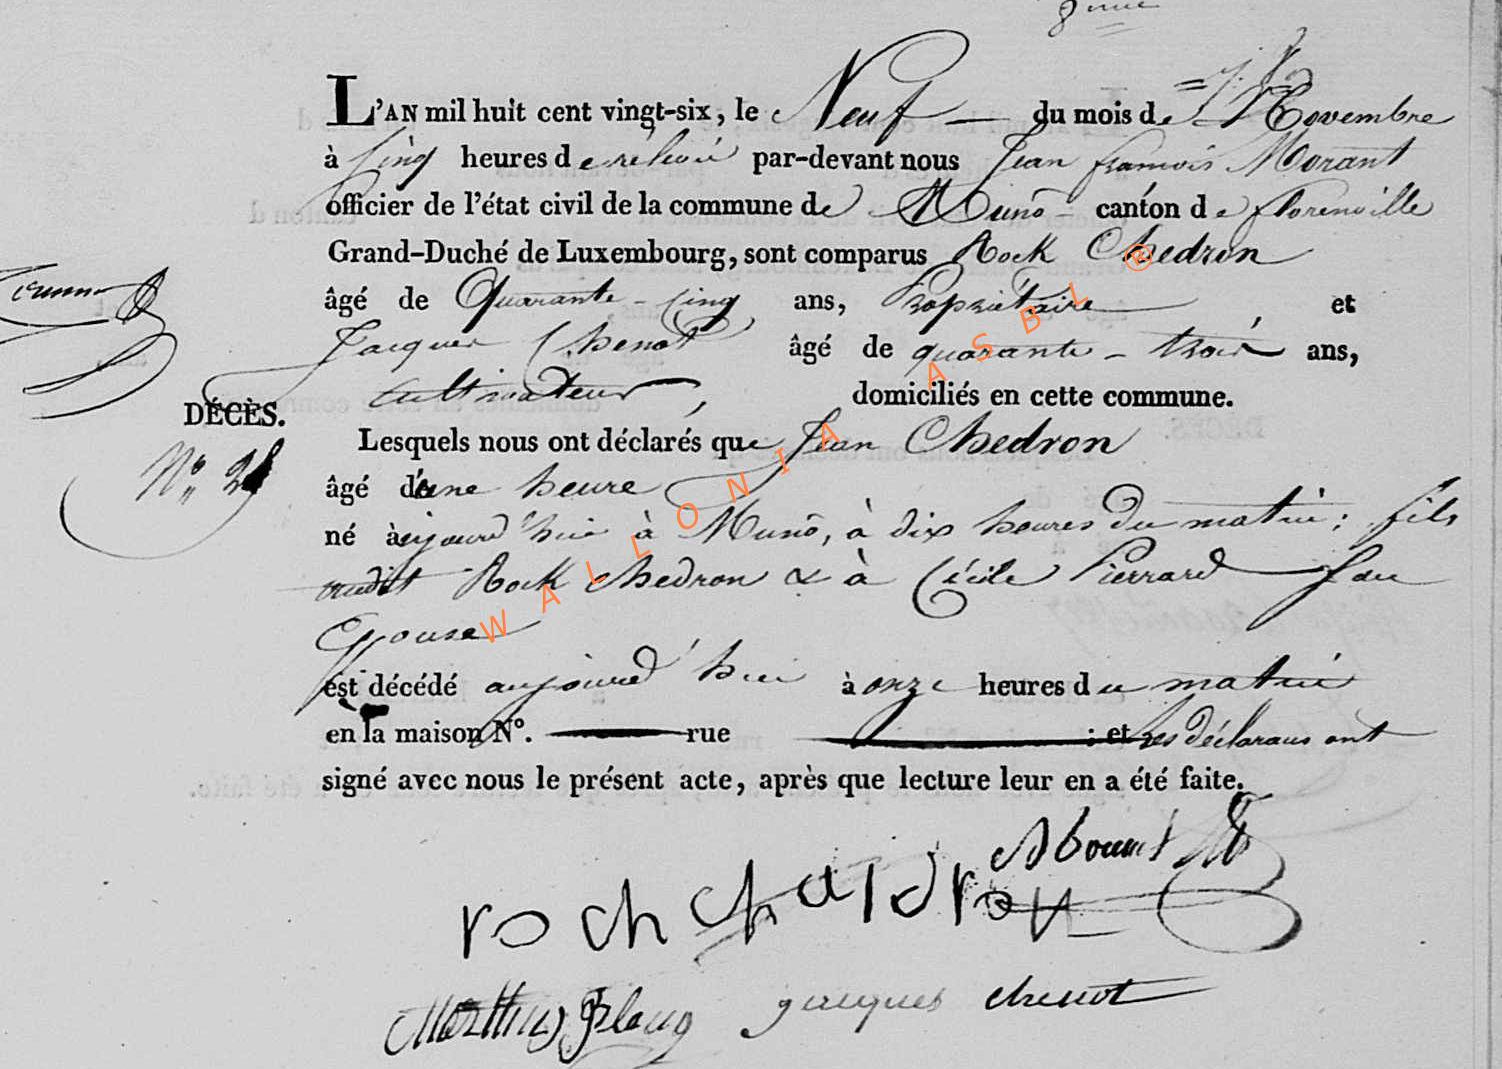 8ème
L'AN mil huit cent vingt-six, le Neuf du mois de Novembre
à cinq heures de rélevée par-devant nous Jean françois Morant
officier de l'état civil de la commune de Muno canton de florenville
Grand-Duché de Luxembourg, sont comparus Rock Chedron
âgé de Quarante-cinq ans, Propriétaire, et
Jacques Chenot âgé de quarante-trois ans,
cultivateur, domiciliés en cette commune.
DÉCÈS.
Lesquels nous ont déclarés que Jean Chedron
N° 28
âgé d'une heure
né aujourd'hui à Muno, à dix heures du matin; fils
audit Rock chedron & à Cécile Pierrard Sau
Epouse
est décédé aujourd'hui à onze heures du matin
en la maison N°. rue : et les déclarans ont
signé avec nous le présent acte, après que lecture leur en a été faite.
roch chaidron
jacques chenot
WALLONIA ASBL ®